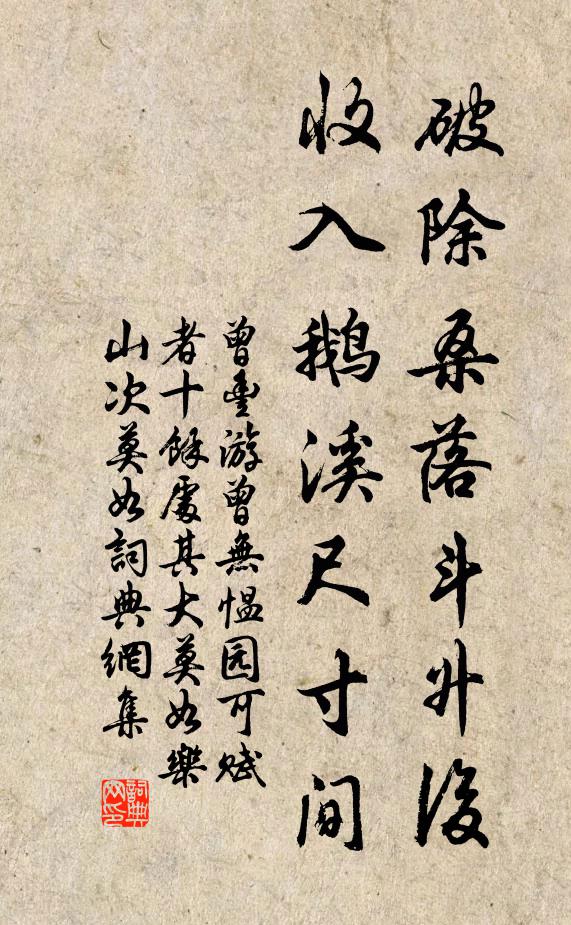 破除桑落斗升後
收入鹅溪尺寸间
曾豊游曾無愠园可赋
者十餘處其大莫如樂
山次莫如詞典網集
詞典
网印